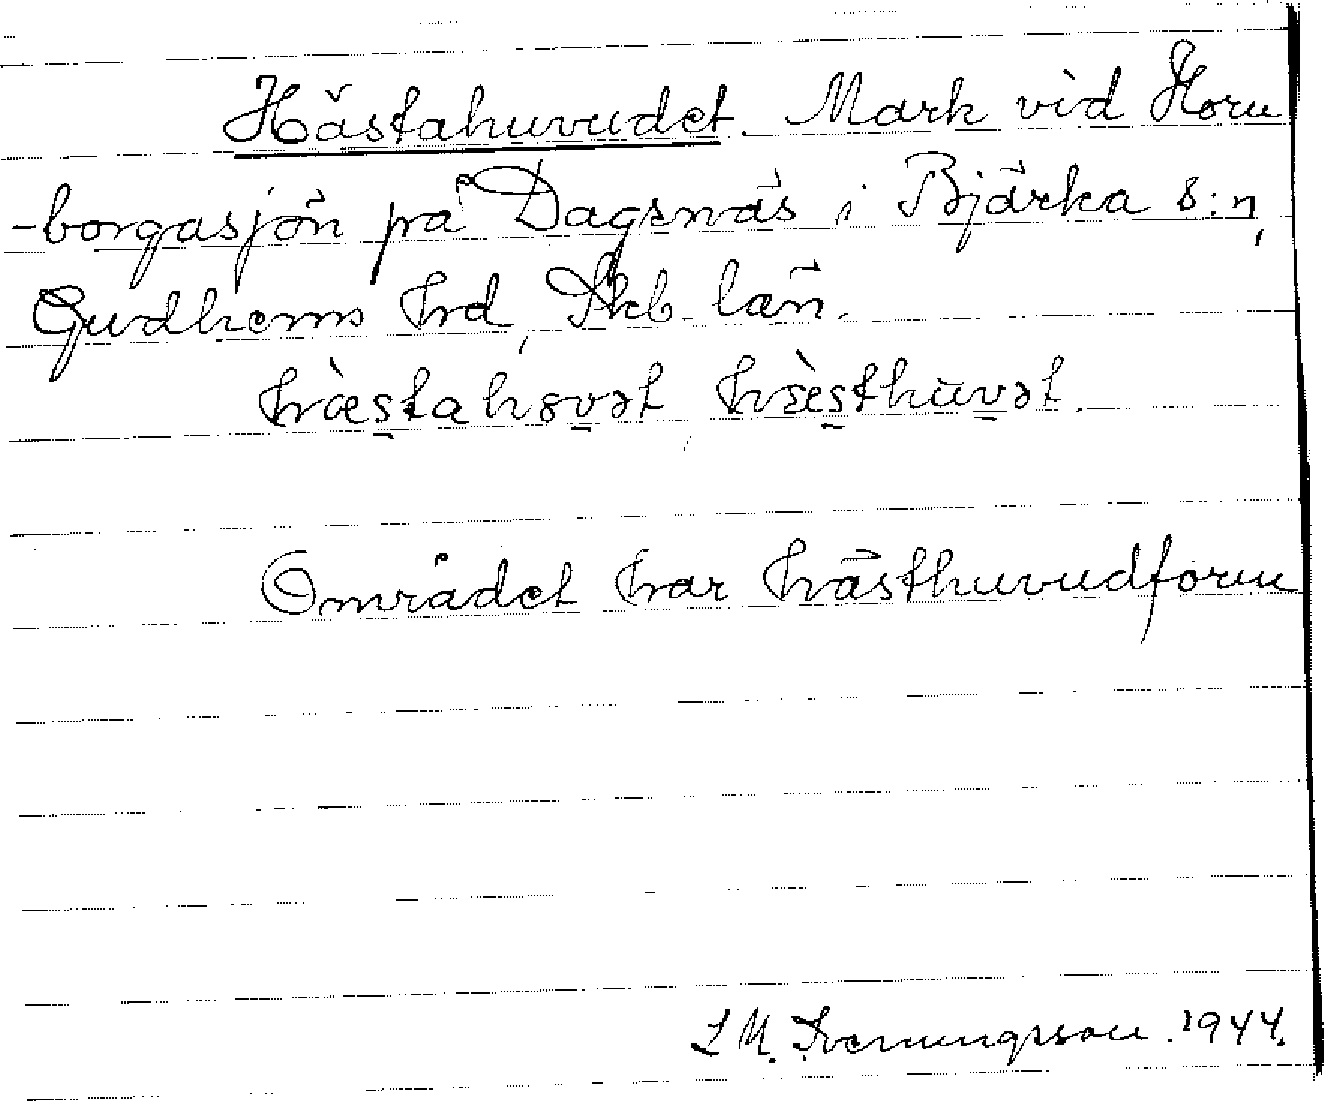 Hästahuvudet. Mark vid Horn
-borgasjön på Dagsnäs i Bjärka s:n,
Gudhems hrd, Skb. län.
hæ̀stahʉvət hæ̀sthʉvət.
Området har hästhuvudform
1944.